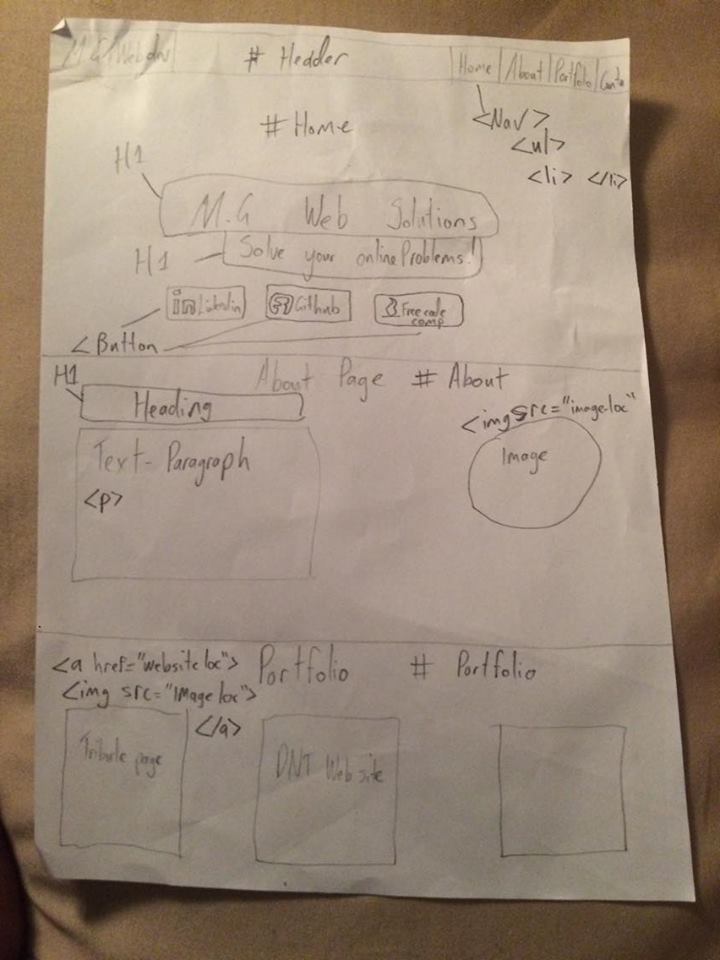 M.G Webdev # Hedder Home About Portfolio Conta
# Home
<Nav>
<ul>
<li> </li>
H1
M.G Web Solutions
H1
Solve your online Problems!
in Linkedin Github Freecode camp
<Button
About Page # About
H1
Heading
<img src="image-loc"
Text - Paragraph
Image
<p>
<a href="website loc">
Portfolio # Portfolio
<img src="Image loc">
</a>
Tribute page
DNT Web site